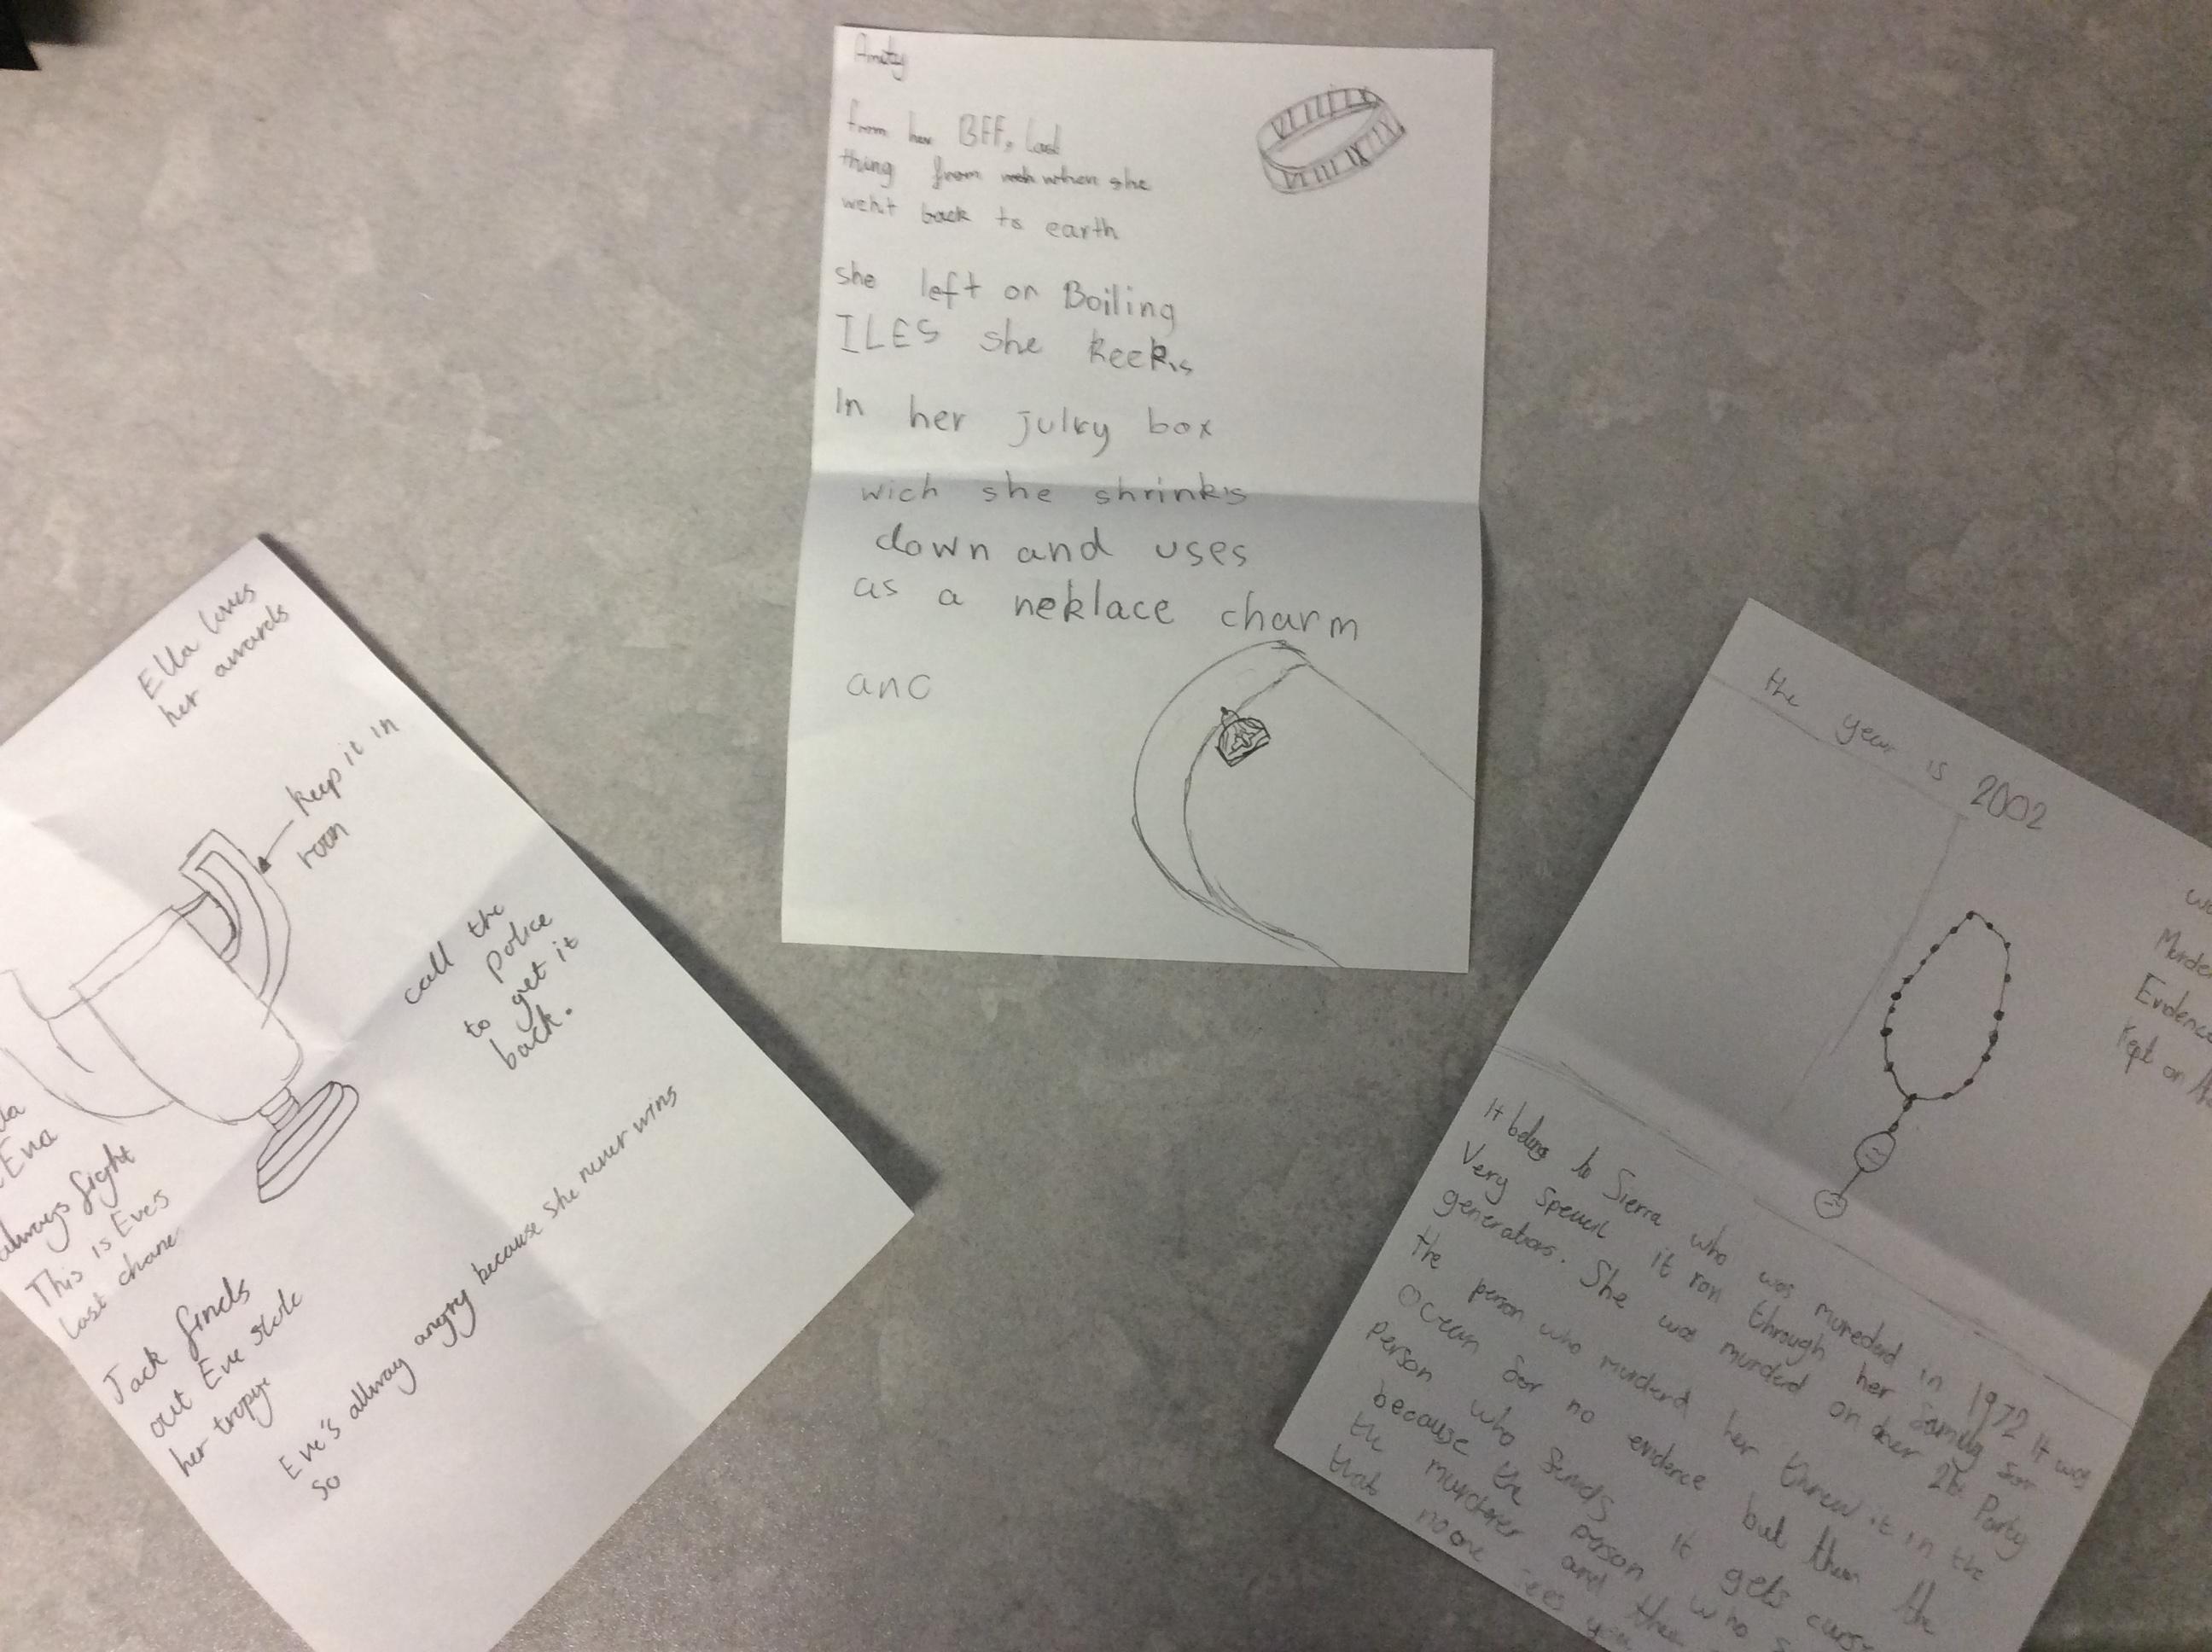 Amity
from her BFF, last
thing from when she
wehit back to earth
she left on Boiling
ILES she keeks
In her julry box
wich she shrinks
down and uses
as a neklace charm
and
Ella loves
her awards
Keep it in
room
call the
police
to get it
back.
Eva
always fight
This is Eves
last chane
Jack finds
out Eve stole
her tropye
Eve's allway angry because she never wins
so
the year is 2002
Murder
Evidence
Kept or
It belongs to Sierra who was mureded in 1972 It was
Very speucil it ran through her family for
generations. She was murded on her 26 Party
the person who murderd her threw it in the
Ocean for no evidence but then the
person who finds it gets curse
because the person who
the murderer and then
that no one sees you